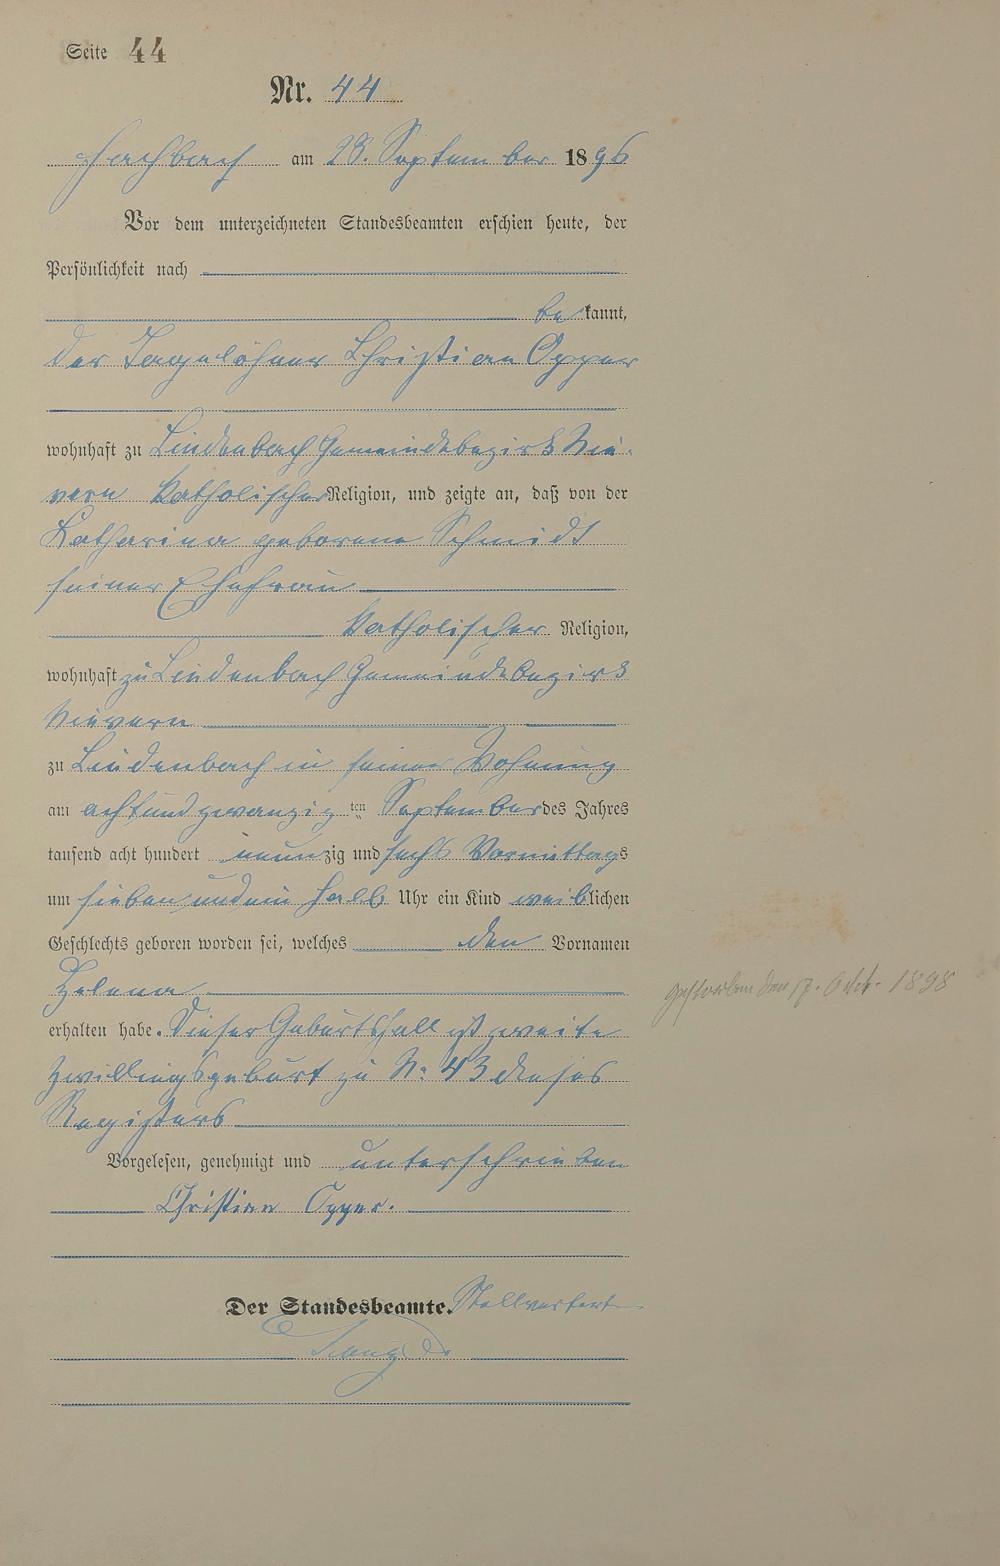 Seite 44
Nr. 44
Fachbach am 28. September 1896
Vor dem unterzeichneten Standesbeamten erschien heute, der
Persönlichkeit nach
bekannt,
der Tagelöhner Christian Opper
wohnhaft zu Lindenbach Gemeindebezirk Nie-
vern katholischer Religion, und zeigte an, daß von der
Katharina geborene Schmidt
seiner Ehefrau
katholischer Religion,
wohnhaft zu Lindenbach Gemeindebezirk
Nievern
zu Lindenbach in seiner Wohnung
am achtundzwanzigten September des Jahres
tausend acht hundert neunzig und sechs Vormittags
um sieben und ein halb Uhr ein Kind weiblichen
Geschlechts geboren worden sei, welches den Vornamen
Helena
gestorben den 17. Okt. 1898
erhalten habe. Dieser Geburtsfall ist zweite
Zwillingsgeburt zu No 43 dieses
Registers
Vorgelesen, genehmigt und unterschrieben
Christian Opper.
Der Standesbeamte. Stellvertret